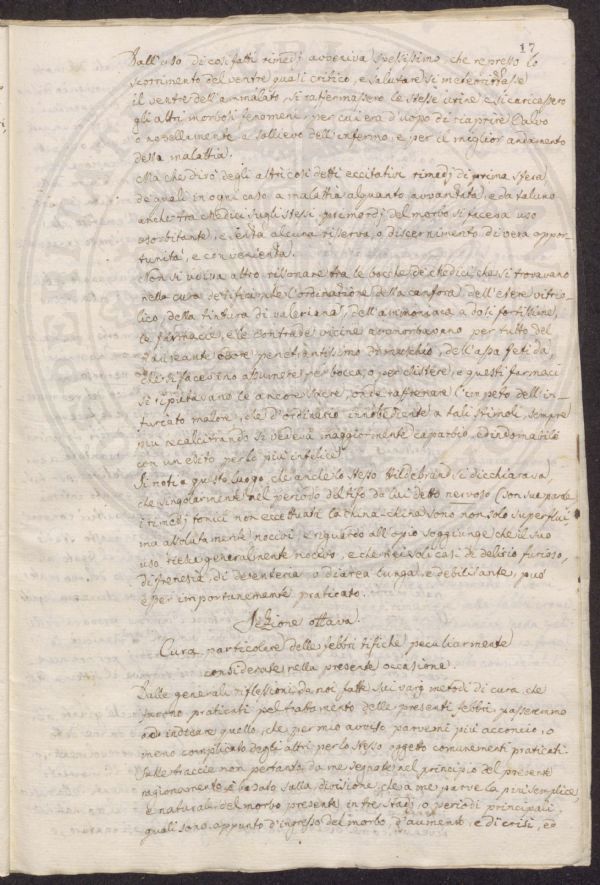 17
Dall'uso di cosi fatti rimedj avveniva spesissimo, che represso lo
scorrimento del ventre quasi critico, e salutare si meteorizzasse
il ventre dell'ammalato, si raffermassero le stesse urine e si caricassero
gli altri morbosi fenomeni, per cui era d'uopo di riaprire l'alvo
o novellamente a sollievo dell'infermo, e per il miglior andamento
della malattia.
Ma che dirò degli altri così detti eccitativi rimedj di prima sfera
de' quali in ogni caso a malattia alquanto avvanzata, e da taluno
anche tra Medici sugli stessi primordj del morbo si faceva uso
esorbitante, e senza alcuna riserva, o discernimento di vera oppor-
tunità, e convenienza.
Non si udiva altro risonare tra le bocche de' Medici che si trovavano
nella cura de' tifi, che l'ordinazione della canfora, dell'etere vitrio-
lico, della tintura di valeriana, dell'ammoniaco a dosi fortissime,
le farmacie, e le contrade vicine ammorbavano per tutto del
nauseante odore penetrantissimo di muschio, dell'assa fetida,
che si facevano assumere per bocca, o per clistere, e questi farmaci
si riputavano le ancore sacre, onde raffrenare l'impeto dell'in-
furiato malore, che d'ordinario innobediente a tali stimoli, sempre
più recalcitrando si vedeva maggiormente caparbio, ed indomabile
con un esito per lo più infelice.
Si noti a questo luogo, che anche lo stesso Hildebrand, si dicchiarava,
che singolarmente nel periodo del tifo da lui detto nervoso (son sue parole)
i rimedj tonici non eccettuati la china-china sono non solo superflui
ma assolutamente nocivi, e riguardo all'opio soggiunge che il suo
uso riesce generalmente nocivo, e che nei soli casi di delirio furioso,
di frenesia, di desenteria, o diarea lunga, e debilitante, può
esser importanemente praticato.
Sezione ottava.
Cura particolare delle febbri tifiche peculiarmente
considerate nella presente occasione.
Dalle generali riflessioni da noi fatte sui varj metodi di cura, che
furono praticati pel trattamento delle presenti febbri, passeremmo
ad indicare quello, che per mio avviso parvemi più acconcio, o
meno complicato degli altri per lo stesso oggetto comunemente praticati.
Sulle traccie non pertanto da me segnate nel principio del presente
ragionamento si badato sulla divisione, che a me parve la più semplice,
e naturale del morbo presente in tre stadj, o periodi principali
quali sono appunto d'ingresso del morbo, d'aumento, e di crisi, ed